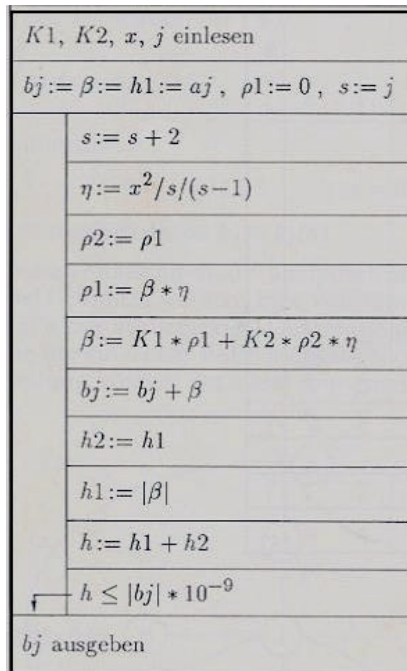 K1, K2, x, j einlesen
bj := β := h1 := aj , ρ1 := 0 , s := j
s := s + 2
η := x²/s/(s−1)
ρ2 := ρ1
ρ1 := β ∗ η
β := K1 ∗ ρ1 + K2 ∗ ρ2 ∗ η
bj := bj + β
h2 := h1
h1 := |β|
h := h1 + h2
h ≤ |bj| ∗ 10⁻⁹
bj ausgeben